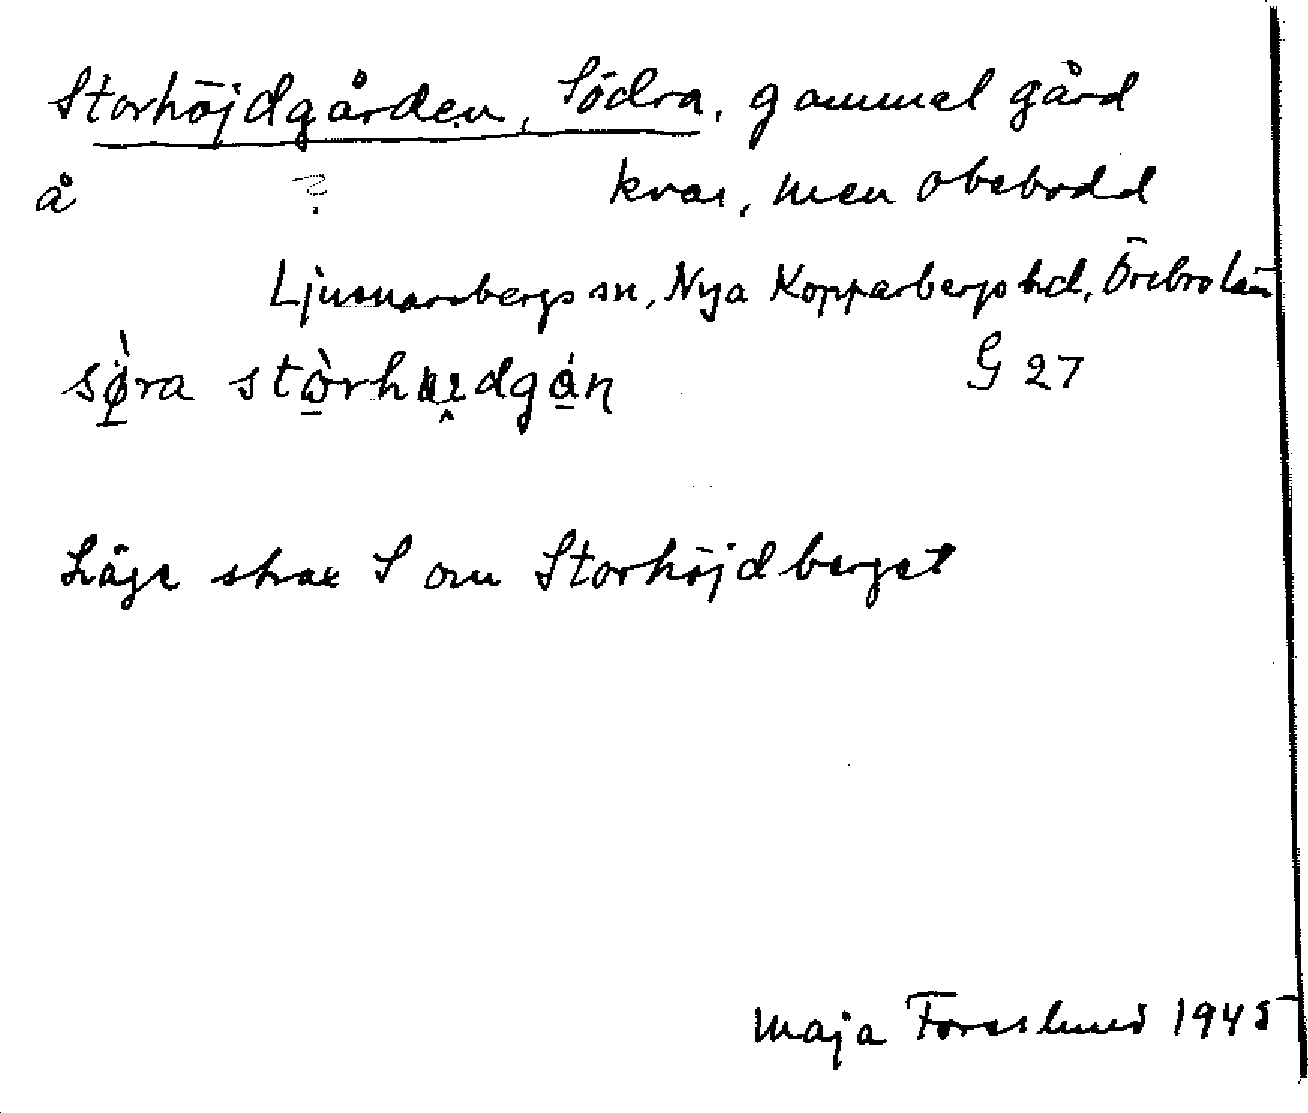 Storhöjdgården, Södra, gammel gård
å ? kvar, men obebodd
Ljusnarsbergs sn, Nya Kopparbergs hd, Örebro län
G 27
Läge strax S om Storhöjdberget
Maja Forsslund 1945